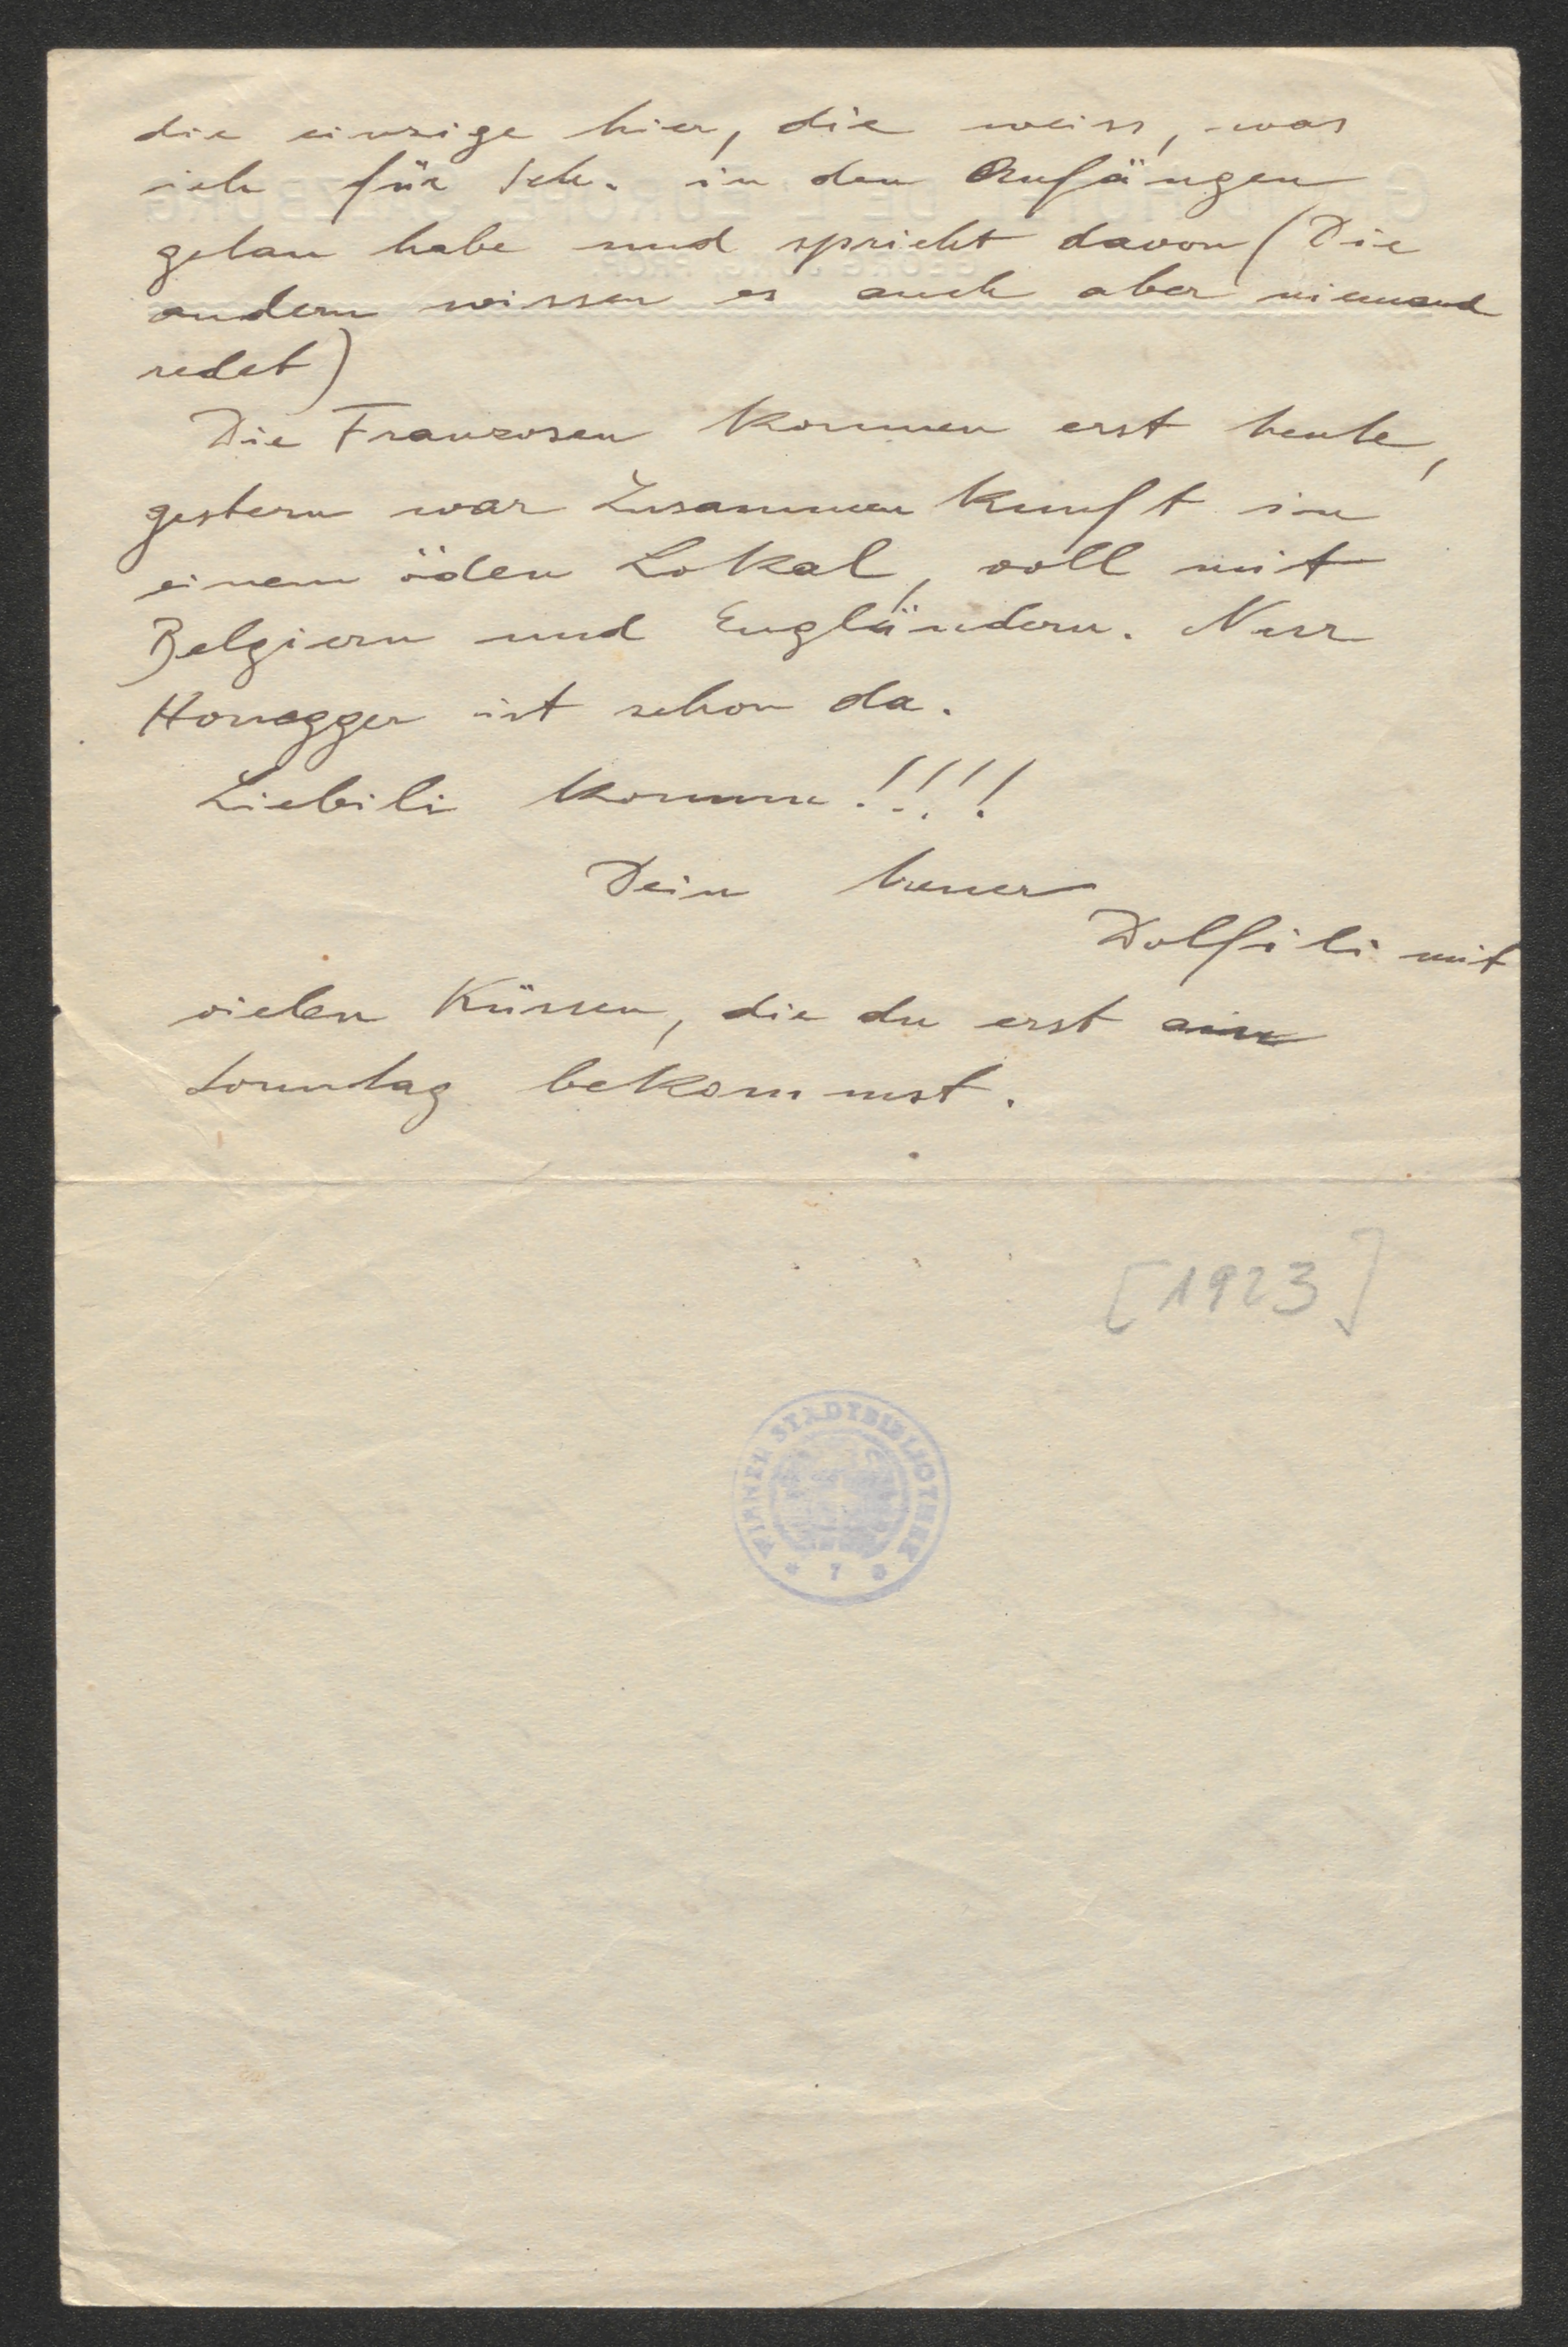 die einzige hier, die weiss, was
ich für Sch. in den Anfängen
getan habe und spricht davon (Die
andern wissen es auch aber niemand
redet)
Die Franzosen kommen erst heute,
gestern war Zusammenkunft in
einem öden Lokal, voll mit
Belgiern und Engländern. Nur
Honegger ist schon da.
Liebili komm!!!!
Dein treuer
Dolfili mit
vielen Küssen, die du erst am
Sonntag bekommst.
[1923]
WIENER STADTBIBLIOTHEK